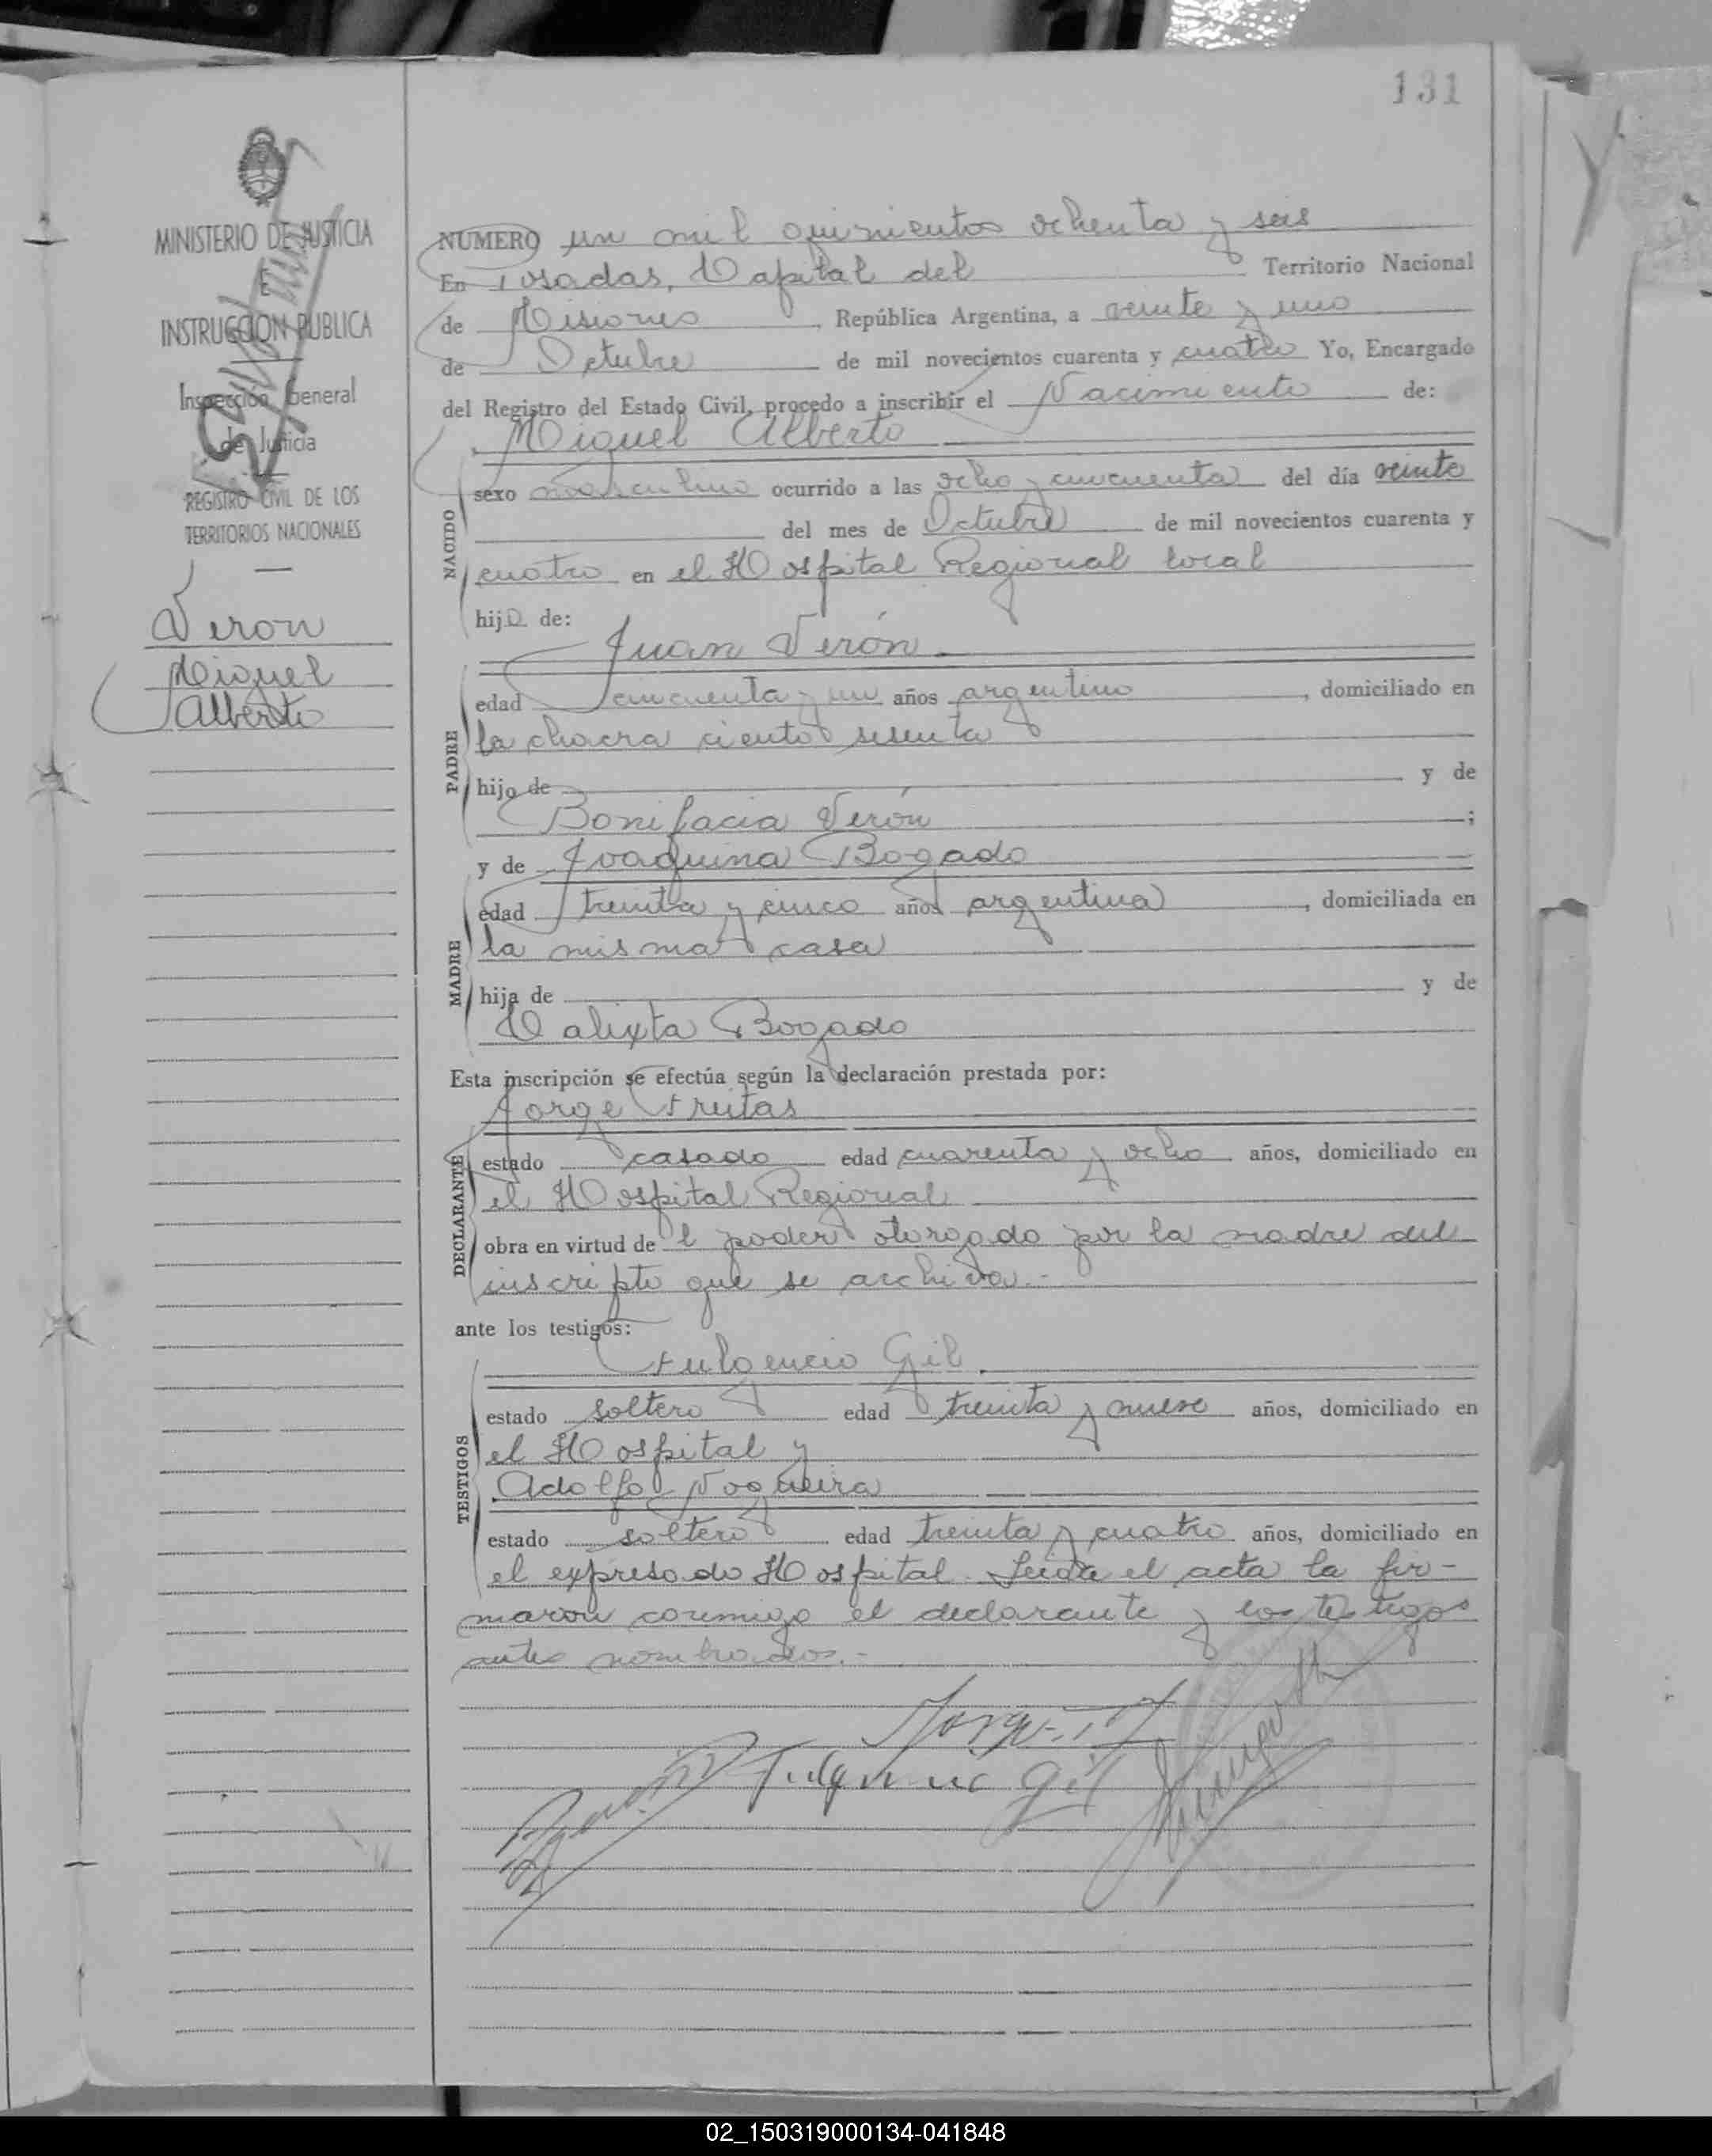 131
MINISTERIO DE JUSTICIA
E
INSTRUCCION PUBLICA
Inspección General
de Justicia
REGISTRO CIVIL DE LOS
TERRITORIOS NACIONALES
Veron
Miguel
Alberto
NUMERO un mil quinientos ochenta y seis
En Posadas, Capital del Territorio Nacional
de Misiones, República Argentina, a veinte y uno
de Octubre de mil novecientos cuarenta y cuatro Yo, Encargado
del Registro del Estado Civil, procedo a inscribir el Nacimiento de:
Miguel Alberto
NACIDO
sexo masculino ocurrido a las ocho y cincuenta del día veinte
del mes de Octubre de mil novecientos cuarenta y
cuatro en el Hospital Regional local
hijo de:
Juan Verón
PADRE
edad cincuenta y un años argentino, domiciliado en
la chacra ciento sesenta
hijo de y de
Bonifacia Verón ;
y de Joaquina Bogado
MADRE
edad treinta y cinco años argentina, domiciliada en
la misma casa
hija de y de
Calixta Bogado
Esta inscripción se efectúa según la declaración prestada por:
Jorge Freitas
DECLARANTE
estado casado edad cuarenta y ocho años, domiciliado en
el Hospital Regional
obra en virtud del poder otorgado por la madre del
inscripto que se archiva.-
ante los testigos:
Fulgencio Gil.
TESTIGOS
estado soltero edad treinta y nueve años, domiciliado en
el Hospital y
Adolfo Nogueira
estado soltero edad treinta y cuatro años, domiciliado en
el expresado Hospital. Leída el acta la fir-
maron conmigo el declarante y los testigos
antes nombrados.-
Fulgencio Gil
02_150319000134-041848